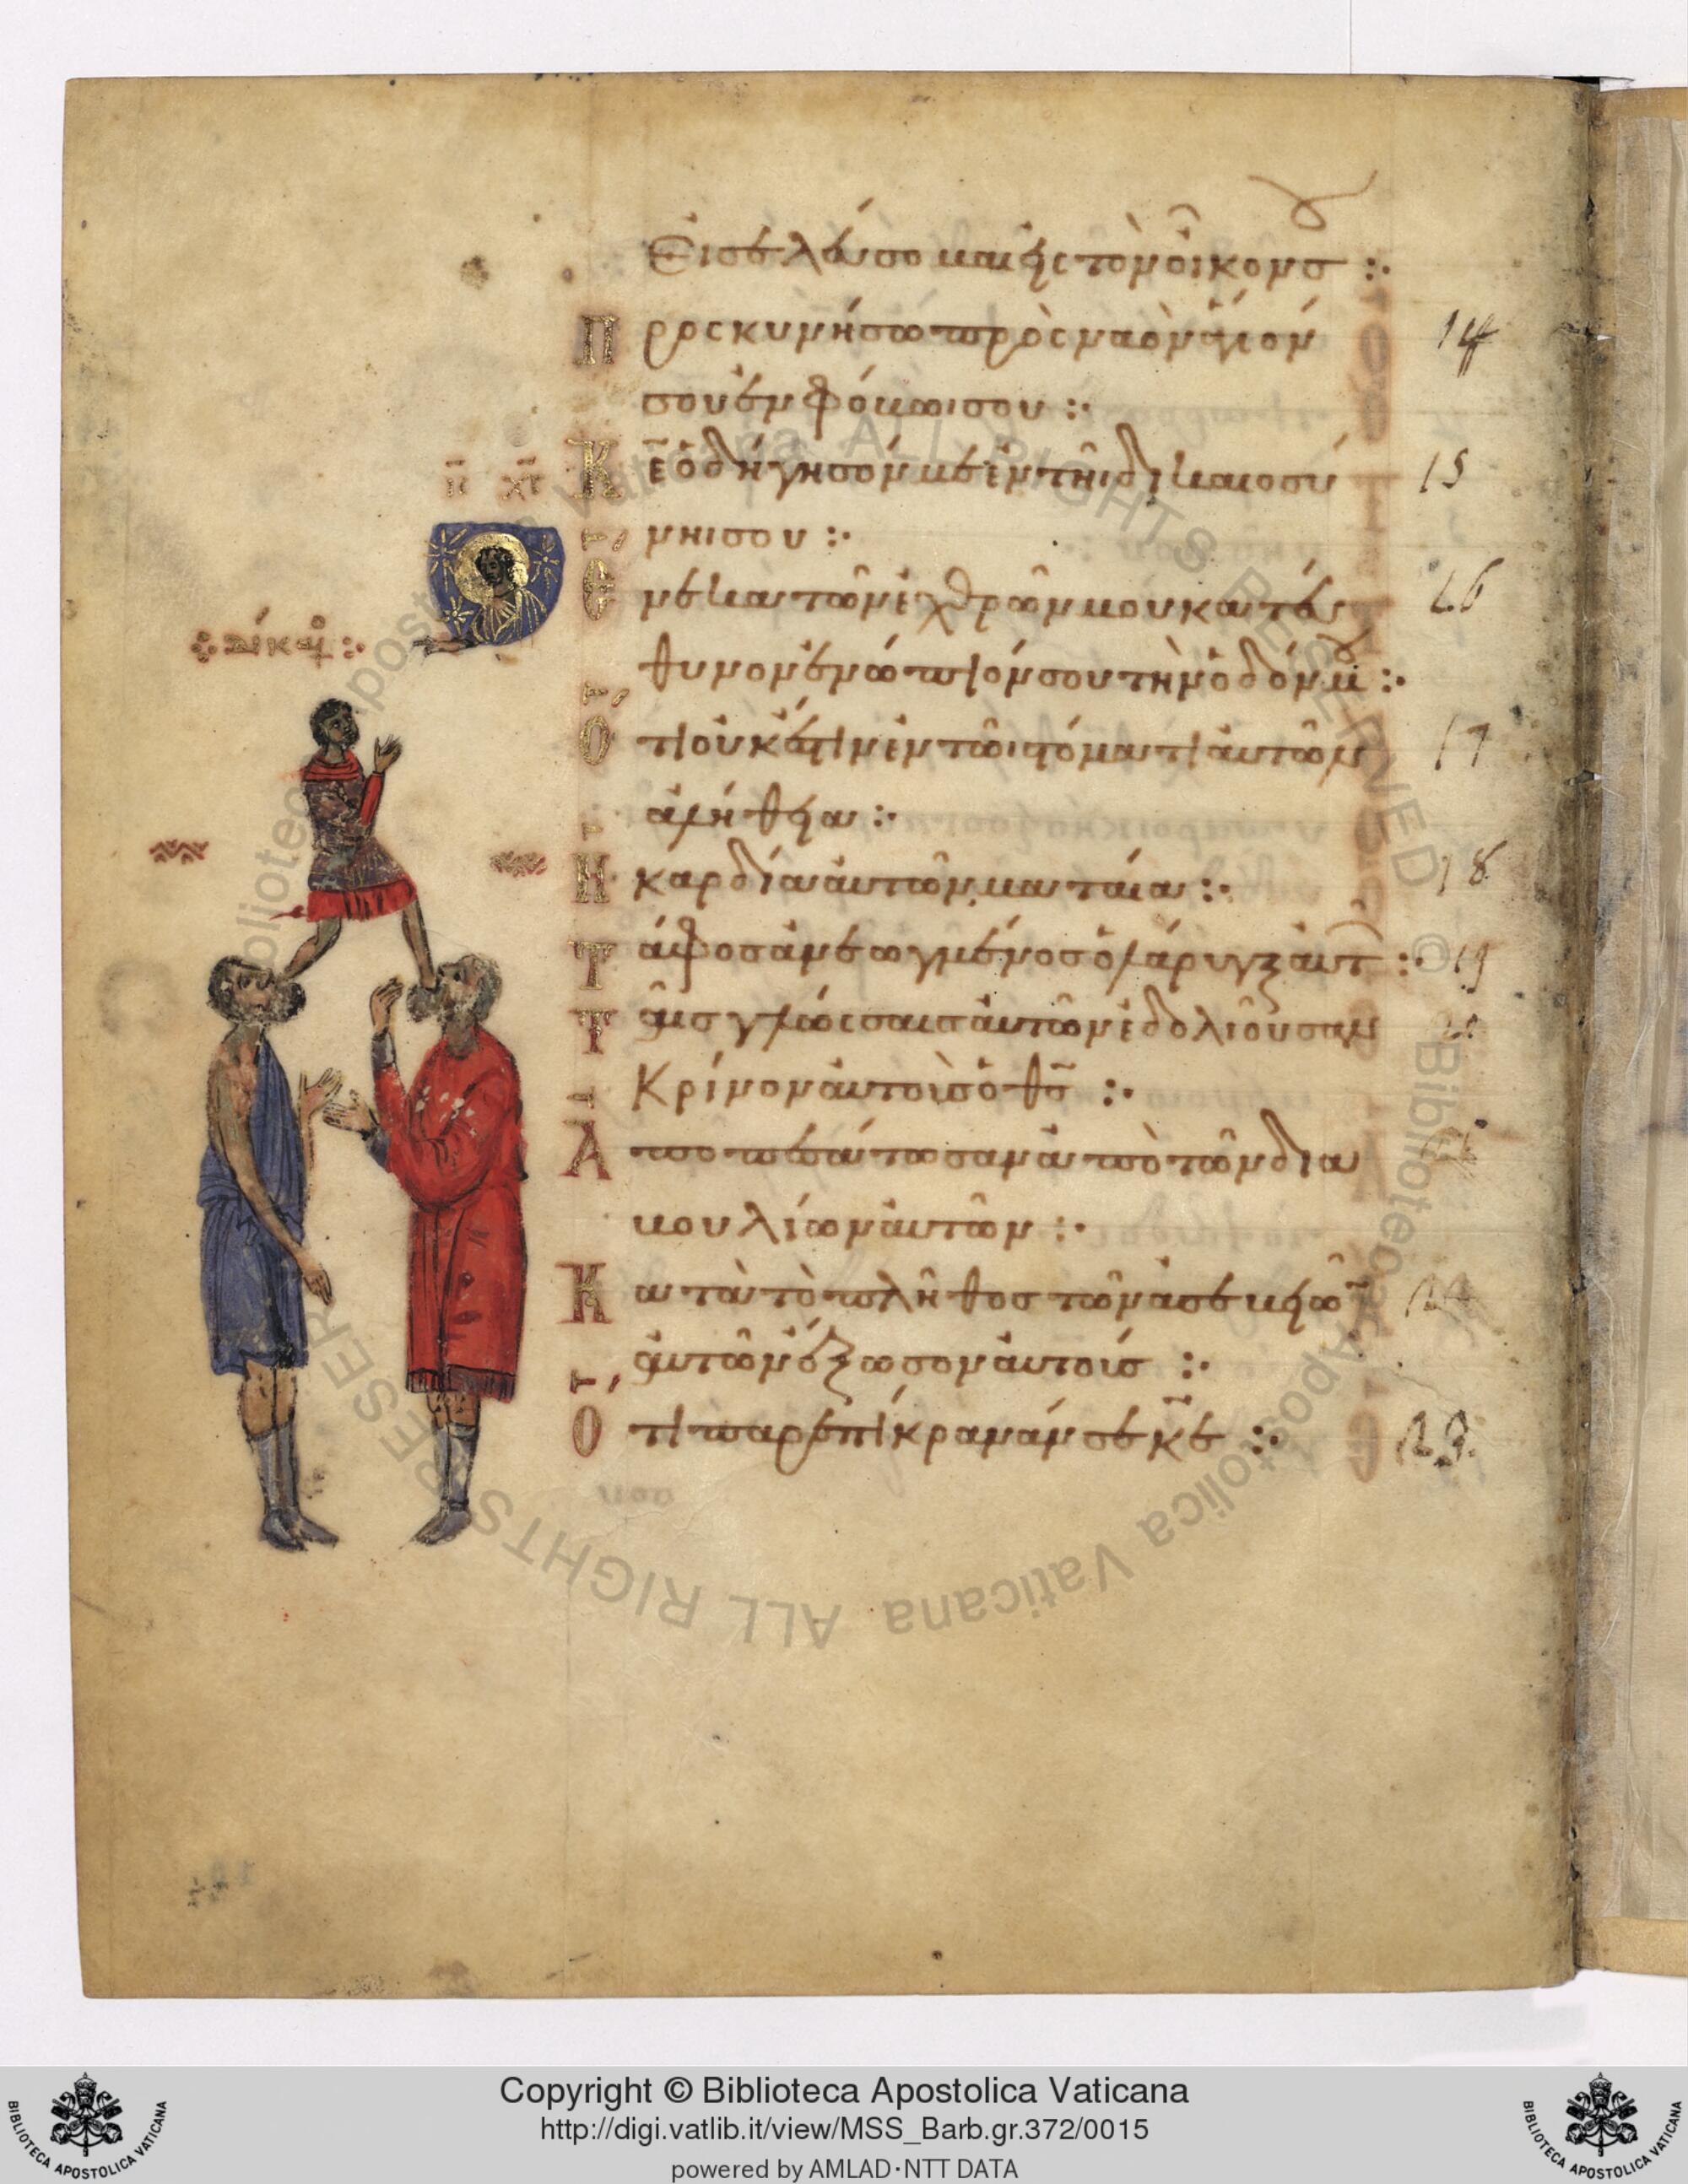 Εἰσελεύσομαι εἰς τὸν οἶκόν σ :·
Προσκυνήσω πρὸς ναὸν ἅγιόν 14
σου ἐν φόβωι σου :·
Κε ὁδήγησόν με ἐν τῆι δικαιοσύ 15
νηι σου :·
Ενεκα τῶν ἐχθρῶν μου κατεύ 16
θυνον ἐνώπιόν σου τὴν ὁδόν μ :·
Ὅτι οὐκ ἔστιν ἐν τῶι στόματι αὐτῶν 17
ἀλήθεια :·
Η καρδία αὐτῶν ματαία :· 18
Τάφος ἀνεωγμένος ὁ λάρυγξ αὐτ :· 19
Ταῖς γλώσσαις αὐτῶν ἐδολιοῦσαν
Κρίνον αὐτοὺς ὁ θς :·
Ἀποπεσάτωσαν ἀπὸ τῶν δια
βουλίων αὐτῶν :·
Κατὰ τὸ πλῆθος τῶν ἀσεβειῶν
αὐτῶν ἔξωσον αὐτούς :·
Ὅτι παρεπίκρανάν σε κε :· 23
Copyright © Biblioteca Apostolica Vaticana
http://digi.vatlib.it/view/MSS_Barb.gr.372/0015
powered by AMLAD·NTT DATA
BIBLIOTECA APOSTOLICA VATICANA
BIBLIOTECA APOSTOLICA VATICANA